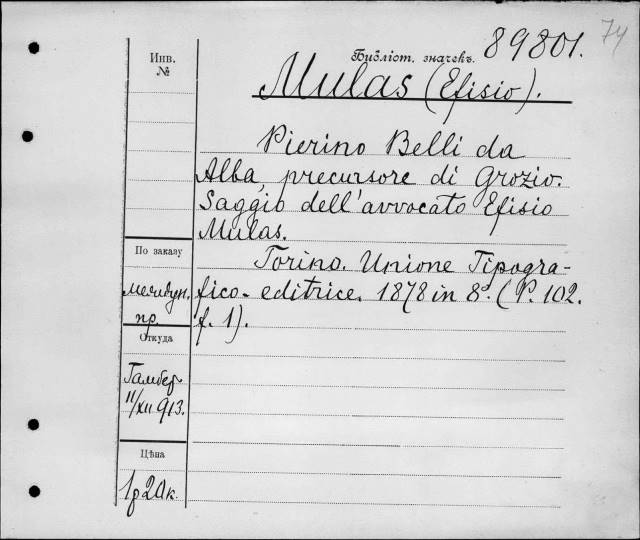 74
Инв.
№
Библіот. значекъ. 89801.
Mulas (Efisio).
Pierino Belli da
Alba, precursore di Grozio.
Saggio dell'avvocato Efisio
Mulas.
Torino. Unione Tipogra-
fico-editrice. 1878 in 8º. (P. 102.
f. 1).
По заказу
междун.
пр.
Откуда
Гамбер
11/XII 913.
Цѣна
1р 20к.